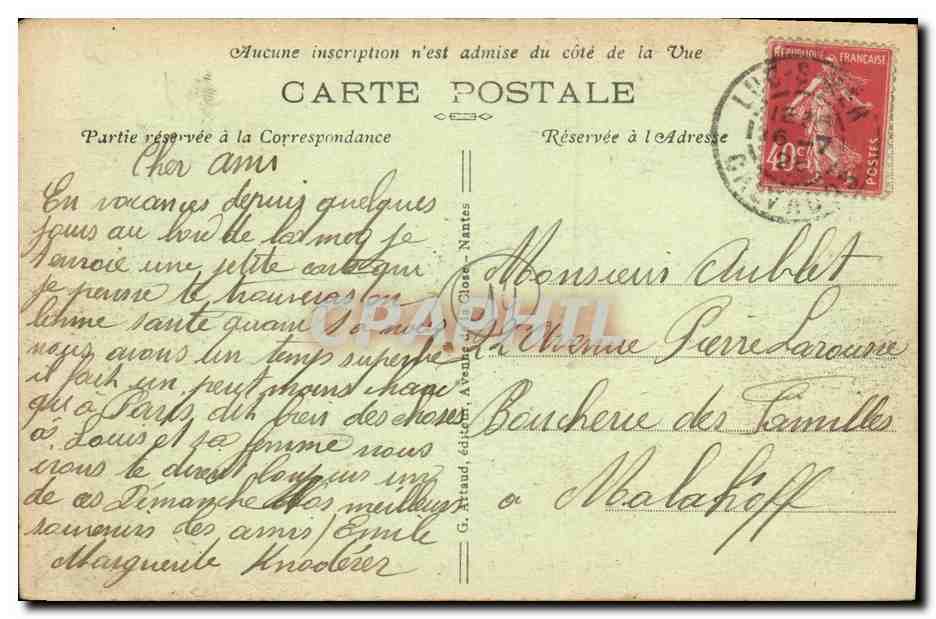 Aucune inscription n'est admise du côté de la Vue
CARTE POSTALE
Partie réservée à la Correspondance
Réservée à l'Adresse
RÉPUBLIQUE FRANÇAISE
40c
POSTES
LUC-S-MER
CALVADOS
Cher ami
En vacances depuis quelques
jours au bord de la mer je
t'envoie une petite carte qui
je pense te trouveras en
bonne santé quant à nous
nous avons un temps superbe
il fait un peut moins chau
qu'à Paris dit bien des choses
à Louis et sa femme nous
irons le diront toujours un
de ces Dimanche Nos meilleurs
souvenirs des amis / Emile
Marguerite Knoderer
G. Artaud, éditeur, Avenue de la Close - Nantes
CPAPHIL
Monsieur Aublet
Avenue Pierre Larousse
Boucherie des Familles
à Malakoff